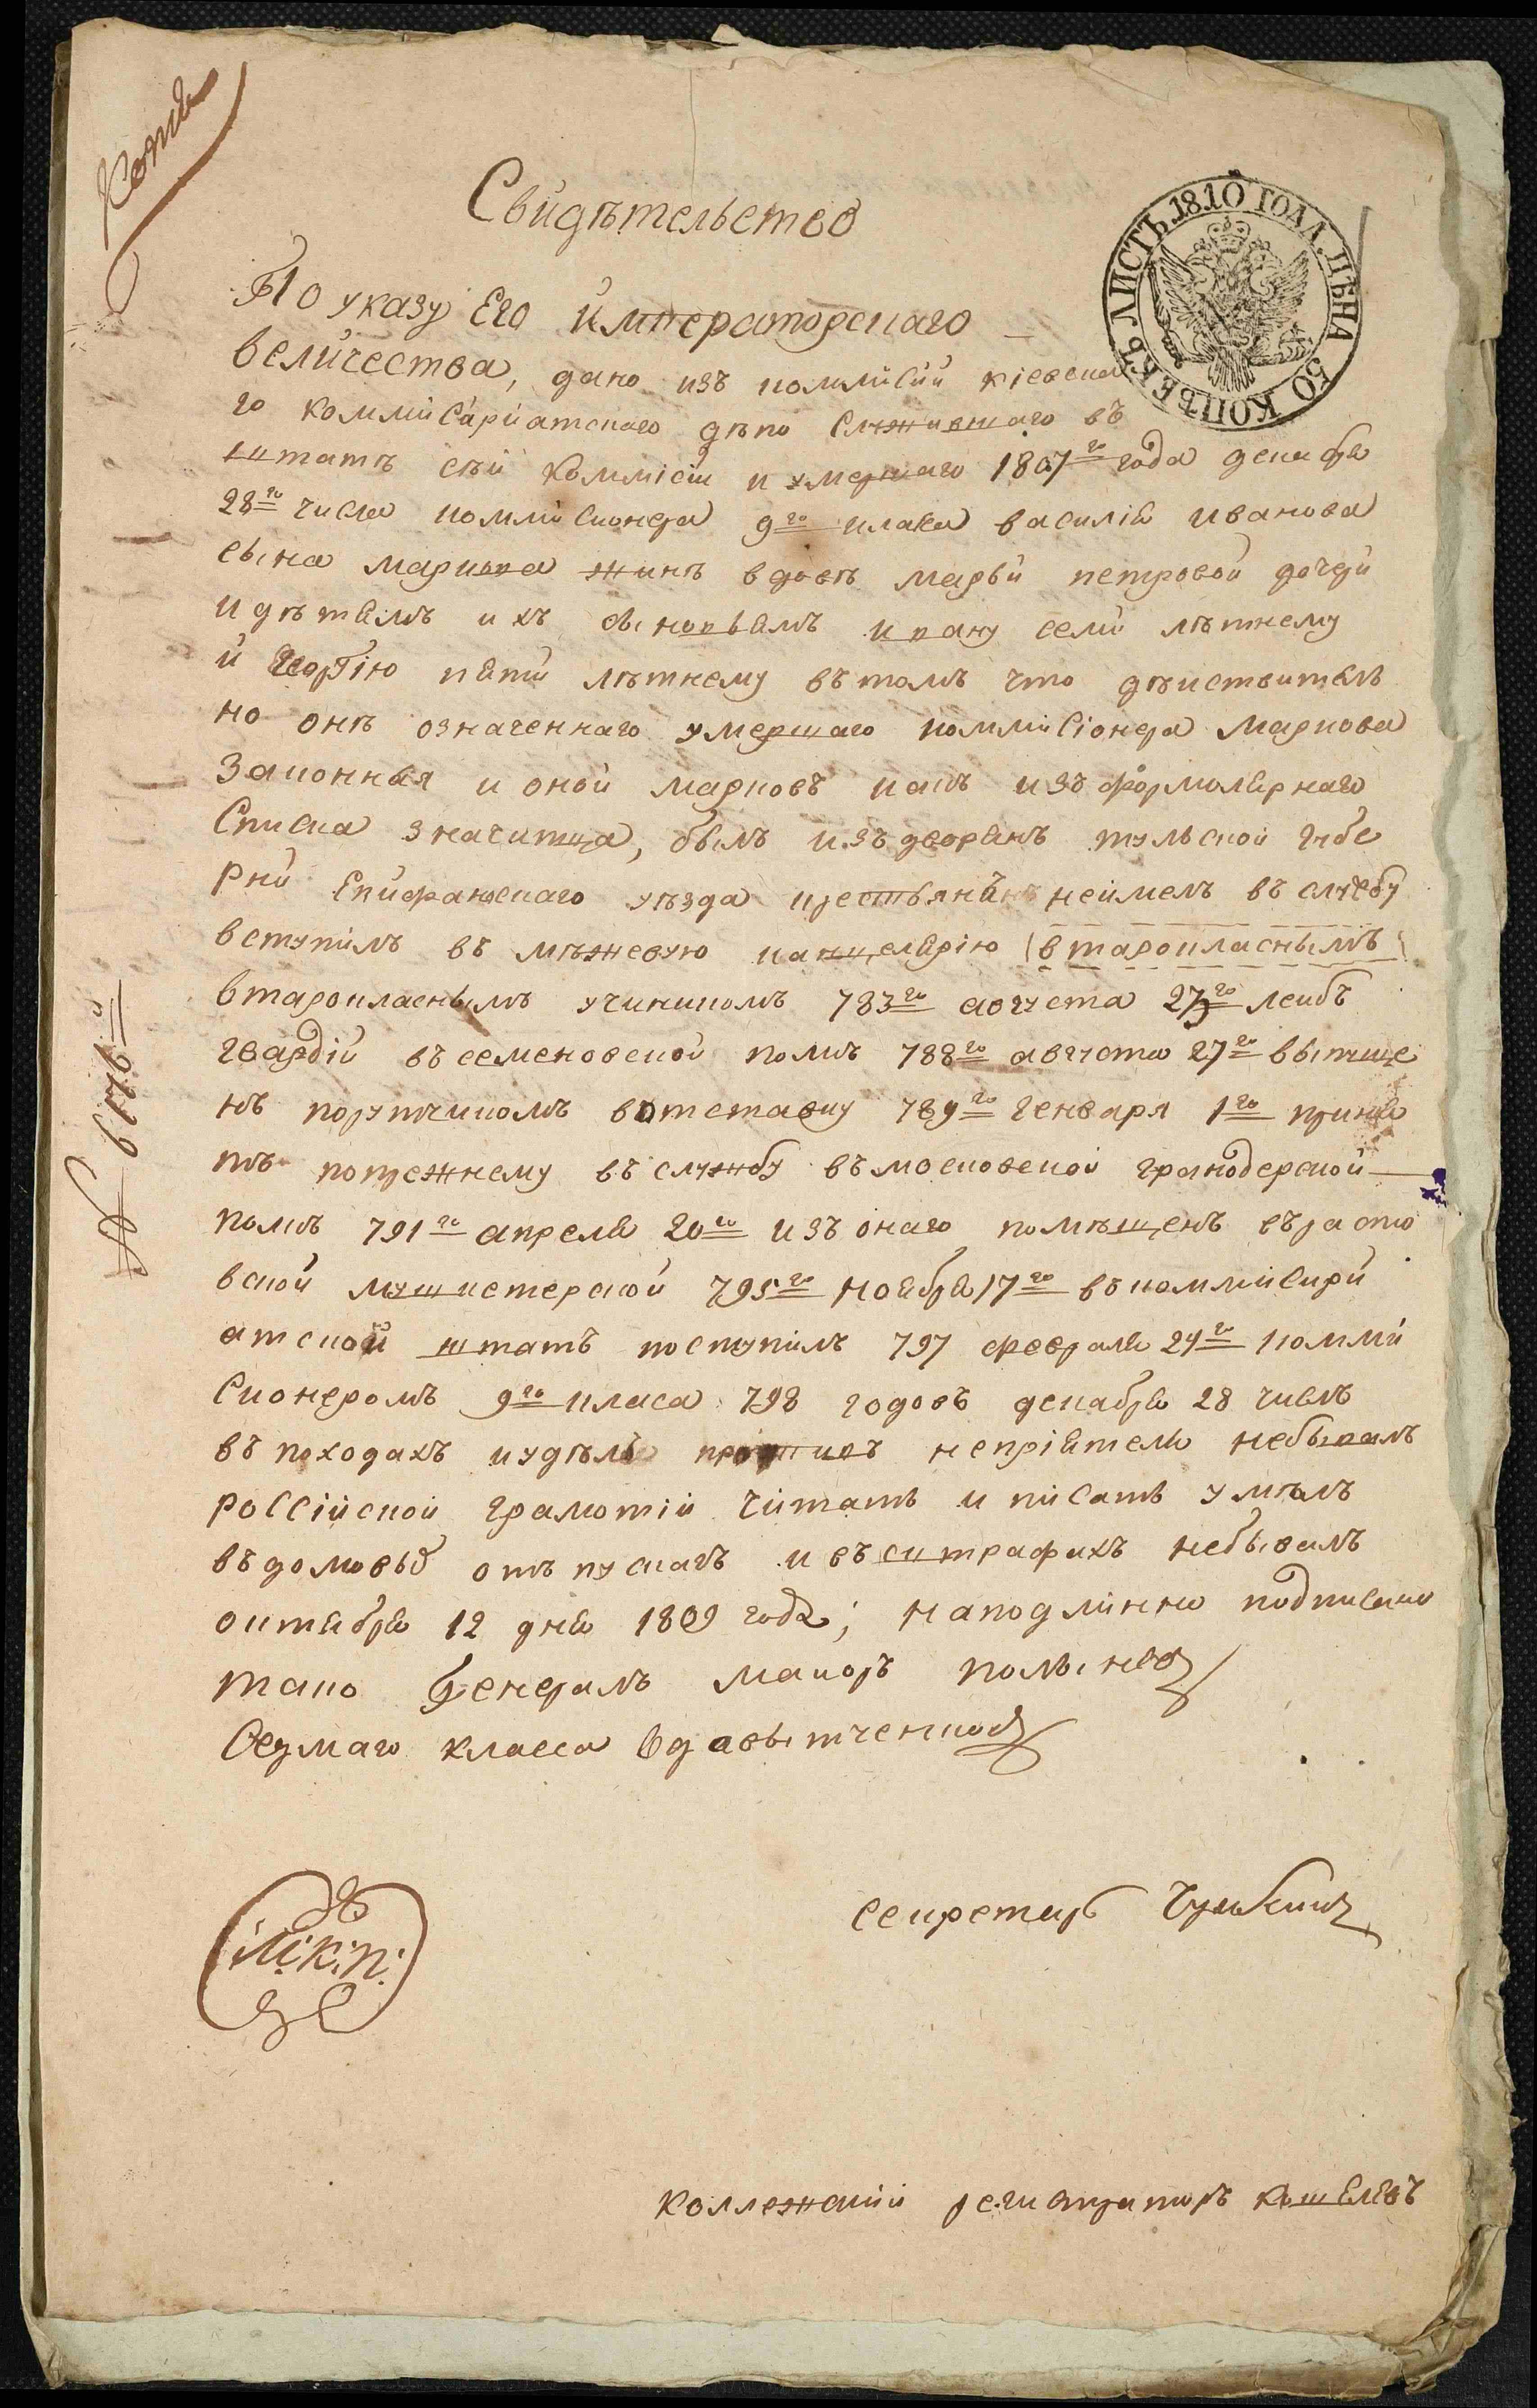 Копія
Свидѣтельство
ЛИСТЪ 1810 ГОДА. ЦѢНА 50 КОПѢЕКЪ
По указу Его Императорскаго
величества, дано изъ коммисіи кіевска
го коммисаріатскаго дѣпо служившаго въ
штатѣ сѣй коммісіи и умершаго 1807го года декабря
28го числа коммисионера 9го класа василія иванова
сына маркова жинѣ вдовѣ марьи петровой дочери
и дѣтямъ ихъ сыновьямъ ивану семи лѣтнему
и Георгію пяти лѣтнему въ томъ что дѣиствитель
но онѣ означеннаго умершаго коммисіонера Маркова
Законныя и оной марковъ какъ изъ формулярнаго
Списка значитца, былъ изъ дворянъ тульской губе
рни Епифанскаго уѣзда крестьянъ неимелъ въ службу
вступилъ въ мѣжевую канцелярію (втарокласнымъ)
втарокласнымъ учиникомъ 783го августа 27го леибъ
гвардіи въ семеновской полкъ 788го августа 27го выпуще
нъ порутчикомъ вотставку 789го Генваря 1го приня
тъ попрежнему въ службу въ московской гранодерской
полкъ 791го апреля 20го изъ онаго помѣщенъ въ расто
вской мушкетерской 795го Ноября 17го въ коммисари
атской штатъ поступилъ 797 февраля 24го коммі
Сионеромъ 9го класа 798 годовъ декабря 28 числъ
въ походахъ и удѣлѣ противъ непріятеля небывалъ
россійской грамотій читать и писать умѣлъ
въ домовыя отъ пускахъ и въ штрафахъ небывалъ
октября 12 дня 1809 года; на подлинно подписано
тако Генералъ маиоръ
Седмаго класса
М.К.П.
секретарь
коллежскій регистраторъ Кошелевъ
№ 6176й